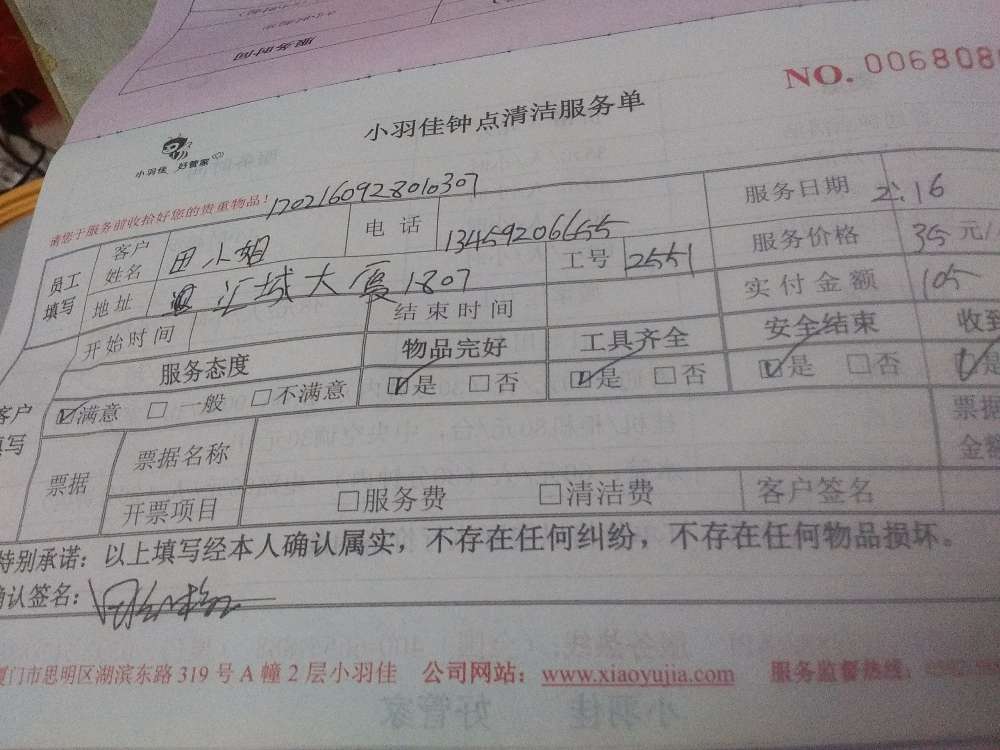 服务时间
NO. 006808
小羽佳钟点清洁服务单
小羽佳 好管家
请您于服务前收拾好您的贵重物品!
1702160928010307
员工填写 客户姓名 田小姐 电话 13459206655 服务日期 2.16
地址 汇城大厦1807 工号 2551 服务价格 35 元/
开始时间 结束时间 实付金额 105
服务态度 物品完好 工具齐全 安全结束 收到
客户填写 ☑满意 □一般 □不满意 ☑是 □否 ☑是 □否 ☑是 □否 ☑是
票据 票据名称 票据金额
开票项目 □服务费 □清洁费 客户签名
特别承诺：以上填写经本人确认属实，不存在任何纠纷，不存在任何物品损坏。
确认签名：
厦门市思明区湖滨东路319号A幢2层小羽佳 公司网站：www.xiaoyujia.com 服务监督热线：